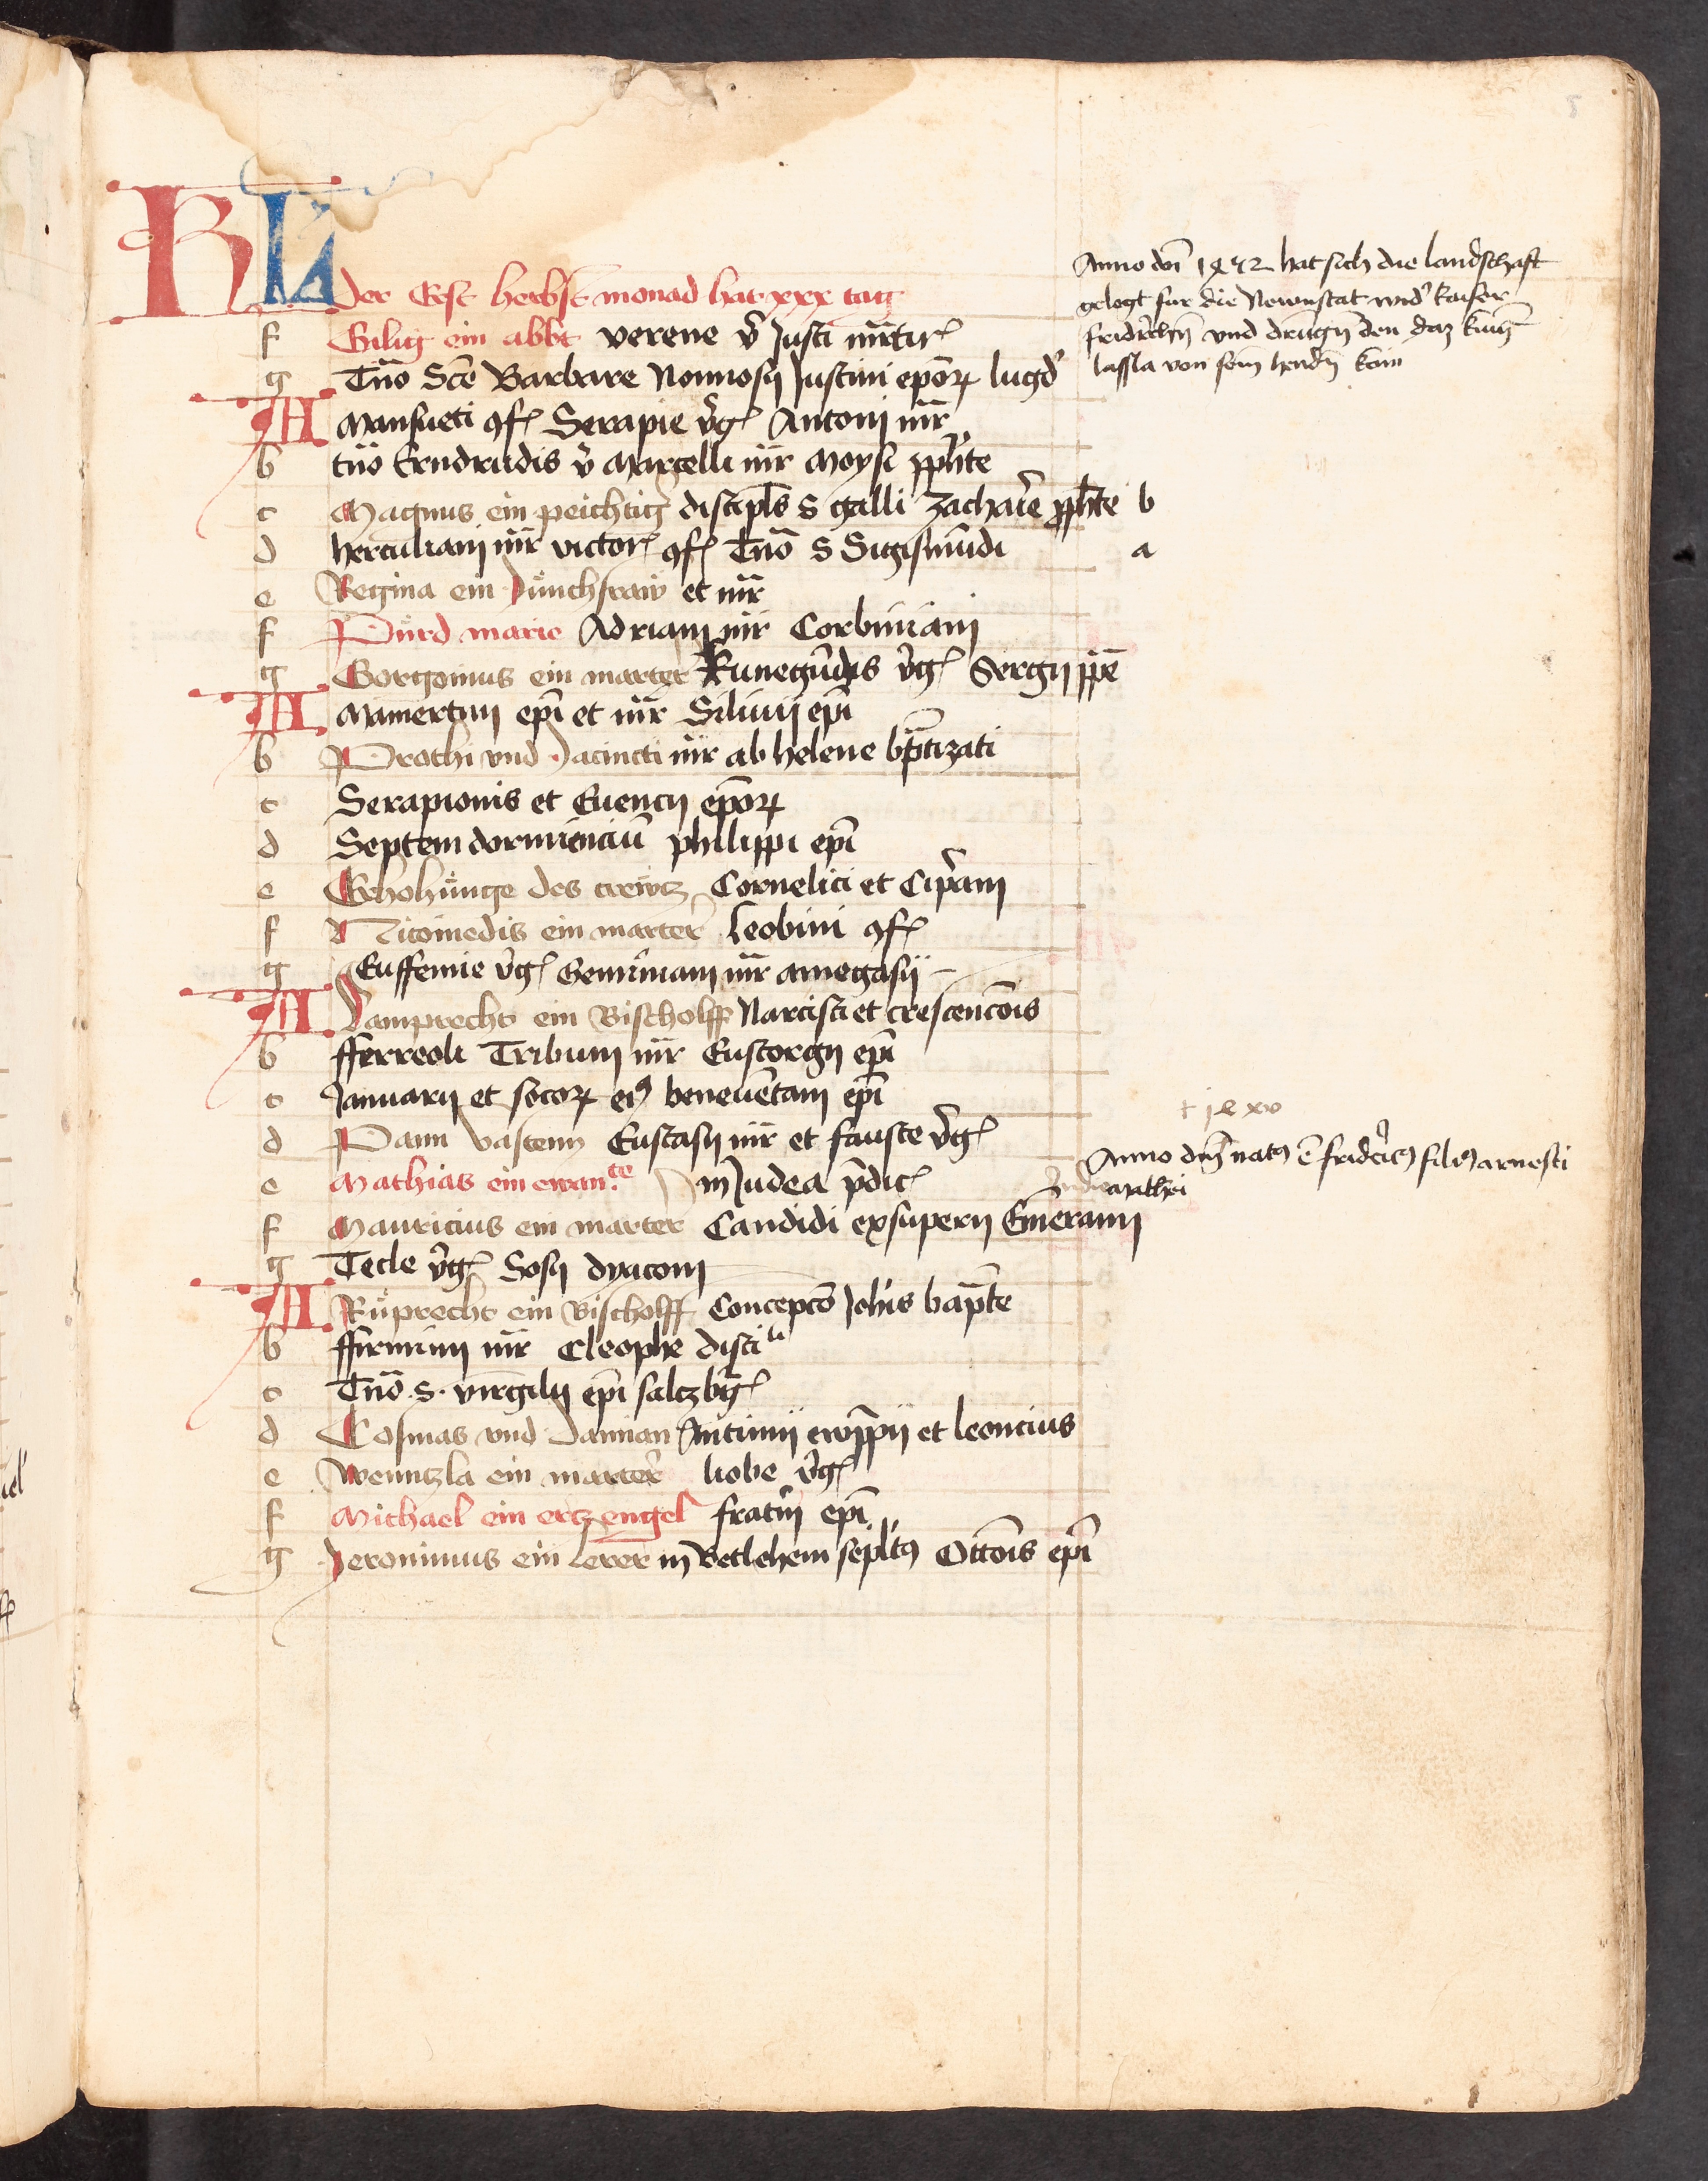 KL
Der Erst herbst monad hat xxx tag
f Gilig ein abbt verene v̄ Justi mr̄tir
g Tn̄o Scē Barbare Nonnosij Justini epōrꝫ lugd
A Mansueti ꝯf Serapie v̄g Antonij mr̄
b tn̄o Erndrudis v̄ Marcelli mr̄ Moysi ꝓph̄te
c Magnus ein peichtiḡ discipl̄s S galli Zacharie ꝓph̄te b
d herculianj mr̄ victor ꝯf Tn̄o S Sigismūdi a
e Regina ein Junchfraw et mr̄
f Pürd marie Adrianj mr̄ Corbinianj
g Gorgonius ein marter Kunegūdis v̄g Sergij pp̄e
A Mamertinj ep̄i et mr̄ Siluij ep̄i
b Prothi vnd Jacincti mr̄ ab helene bp̄tizati
c Serapionis et Euencij epōrꝫ
d Septem dormienciū philippi ep̄i
e Erhohünge des crewtz Cornelici et Cip̄rianj
f Nicomedis ein marter̄ Leobini ꝯf
g Euffemie v̄g Geminianj mr̄ amegasij
A Lamprecht ein Bischolff Narcisci et crescencōis
b fferreoli Tribunj mr̄ Eustorgij ep̄i
c Januarij et socorꝫ eiꝰ beneuētanj ep̄i
d Pann vastenn Eustasij mr̄ et fauste v̄g
e Mathias ein ewan.te in Judea p̄dic
f Mauricius ein marter̄ Candidi exsuperij Em̄eranj
g Tecle v̄g Sosij dyaconj
A Rüprecht ein Bischolff Concepcō Joh̄is bap̄te
b ffirminj mr̄ Cleophe disci li
c Tn̄o S. virgilij ep̄i saltzbḡ
d Cosmas vnd Damian Antimij ewp̄pij et leoncius
e Wenntzla ein marter̄ liobe v̄g
f Michael ein ertz engel fratn̄ ep̄i
g Jeronimus ein Lerer in Betlehem sepl̄tꝰ Ottōis ep̄i
Anno dn̄i 1452 hat sich die landschaft
gelegt fur die Newnstat wid̄ kaiser
fridr̄ichn̄ vnd drungn̄ den daz kunig
lassla von sein hendn̄ kam
+ 14 xv
Anno dn̄i natꝰ ē frider̄icꝰ filiꝰ arnesti
In die mathei